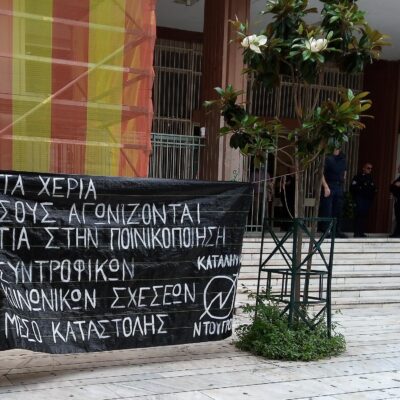 ΤΑ ΧΕΡΙΑ
ΣΟΥΣ ΑΓΩΝΙΖΟΝΤΑΙ
ΓΙΑ ΣΤΗΝ ΠΟΙΝΙΚΟΠΟΙΗΣΗ
ΣΥΝΤΡΟΦΙΚΩΝ
ΚΟΙΝΩΝΙΚΩΝ ΣΧΕΣΕΩΝ
ΜΕΣΟ ΚΑΤΑΣΤΟΛΗΣ
ΚΑΤΑΛΗΨ
ΝΤΟΥΓΡ